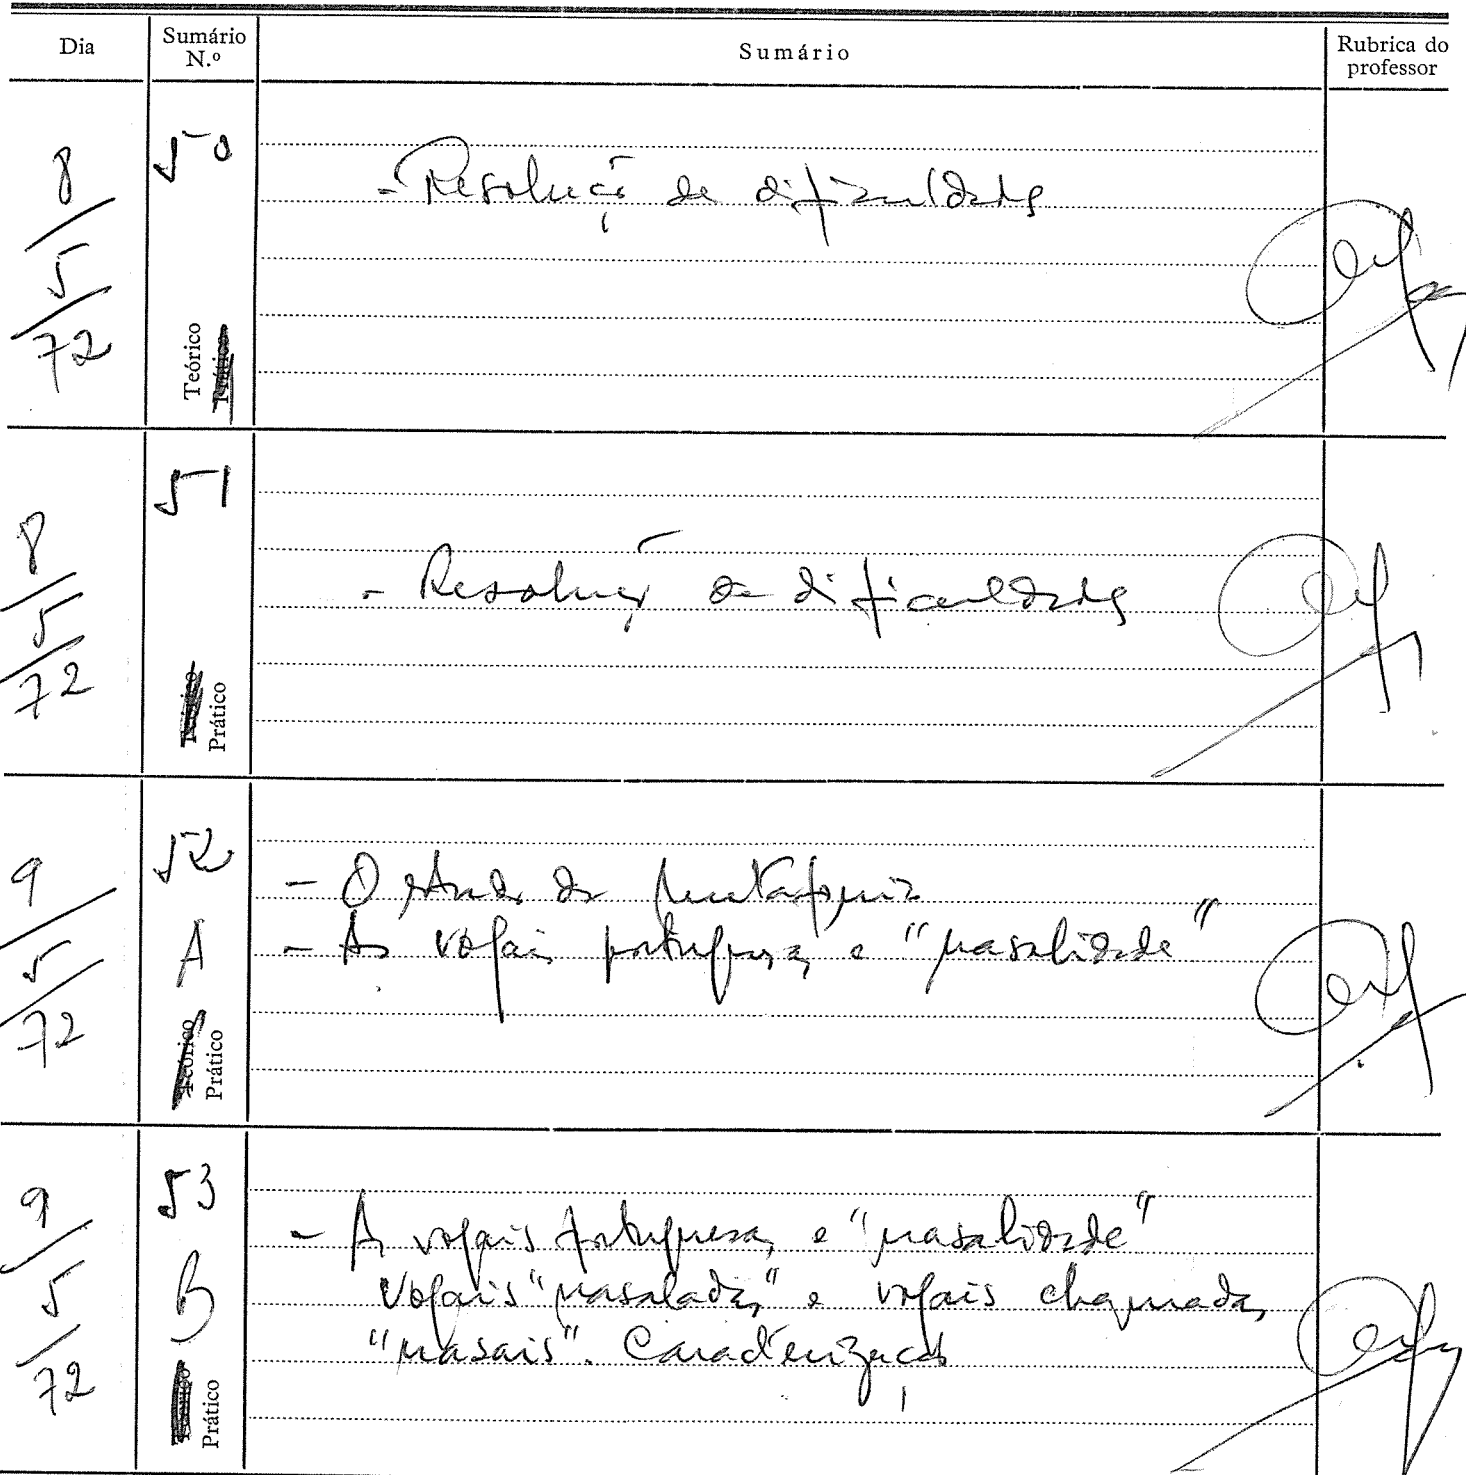 Dia
Sumário N.º
Sumário
Rubrica do professor
8/5/72
50
Teórico
- Resolução de dificuldades
8/5/72
51
Prático
- Resolução de dificuldades
9/5/72
52
A
Teórico
Prático
- O estudo da metafonia
- As vogais portuguesas e "nasalidade"
9/5/72
53
B
Prático
- As vogais portuguesas e "nasalidade"
Vogais "nasaladas" e vogais chamadas
"nasais". Caracterização